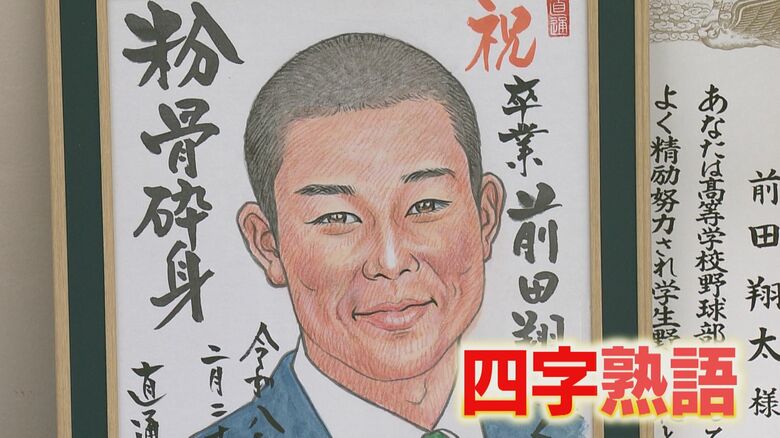 直通
祝
卒業 前田翔
粉骨砕身
令和八
二月二
直通
四字熟語
前田翔太様
あなたは高等学校野球部
よく精励努力され学生野